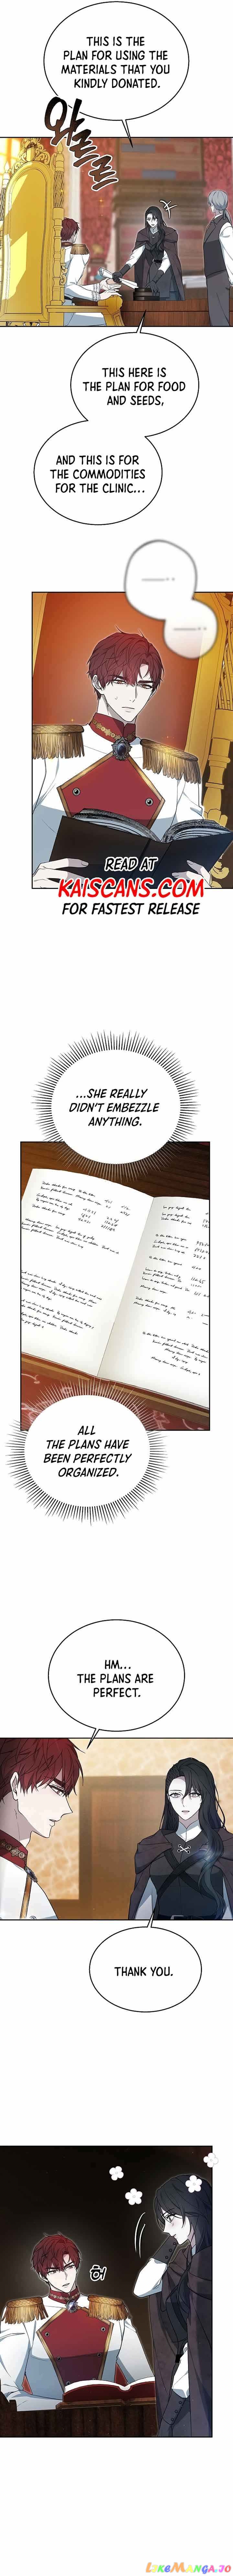 THIS IS THE
PLAN FOR USING THE
MATERIALS THAT YOU
KINDLY DONATED.
와르르
THIS HERE IS
THE PLAN FOR FOOD
AND SEEDS,
AND THIS IS FOR
THE COMMODITIES
FOR THE CLINIC...
READ AT
KAISCANS.COM
FOR FASTEST RELEASE
...SHE REALLY
DIDN'T EMBEZZLE
ANYTHING.
ALL
THE PLANS HAVE
BEEN PERFECTLY
ORGANIZED.
HM...
THE PLANS ARE
PERFECT.
THANK YOU.
LIKEMANGA.IO